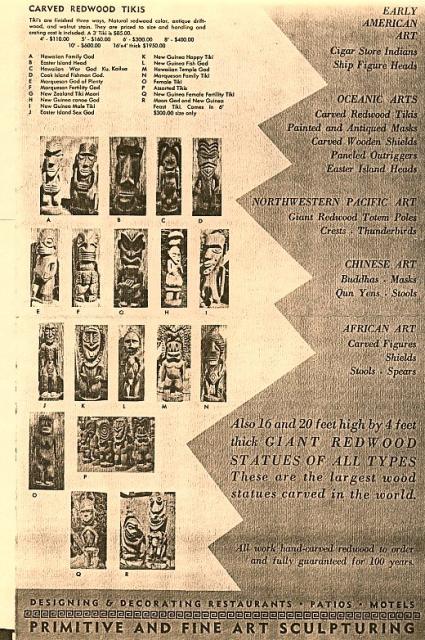 CARVED REDWOOD TIKIS
Tiki's are finished three ways, Natural redwood color, antique drift-
wood, and walnut stain. They are priced to size and handling and
crating cost is included. A 3' Tiki is $85.00.
4' - $110.00 5' - $160.00 6' - $300.00 8' - $400.00
10' - $600.00 16'x4' thick $1950.00
A Hawaiian Family God
B Easter Island Head
C Hawaiian War God Ku, Kailua
D Cook Island Fishman God.
E Marquesan God of Plenty
F Marquesan Fertility God
G New Zealand Tiki Maori
H New Guinea canoe God
I New Guinea Male Tiki
J Easter Island Sex God
K New Guinea Happy Tiki
L New Guinea Fish God
M Hawaiian Temple God
N Marquesan Family Tiki
O Female Tiki
P Assorted Tikis
Q New Guinea Female Fertility Tiki
R Moon God and New Guinea
Feast Tiki. Comes in 6'
$300.00 size only
A B C D
E F G H I
J K L M N
O
P
Q R
EARLY
AMERICAN
ART
Cigar Store Indians
Ship Figure Heads
OCEANIC ARTS
Carved Redwood Tikis
Painted and Antiqued Masks
Carved Wooden Shields
Paneled Outriggers
Easter Island Heads
NORTHWESTERN PACIFIC ART
Giant Redwood Totem Poles
Crests - Thunderbirds
CHINESE ART
Buddhas - Masks
Qun Yens - Stools
AFRICAN ART
Carved Figures
Shields
Stools - Spears
Also 16 and 20 feet high by 4 feet
thick GIANT REDWOOD
STATUES OF ALL TYPES
These are the largest wood
statues carved in the world.
All work hand-carved redwood to order
and fully guaranteed for 100 years.
DESIGNING & DECORATING RESTAURANTS • PATIOS • MOTELS
PRIMITIVE AND FINE ART SCULPTURING